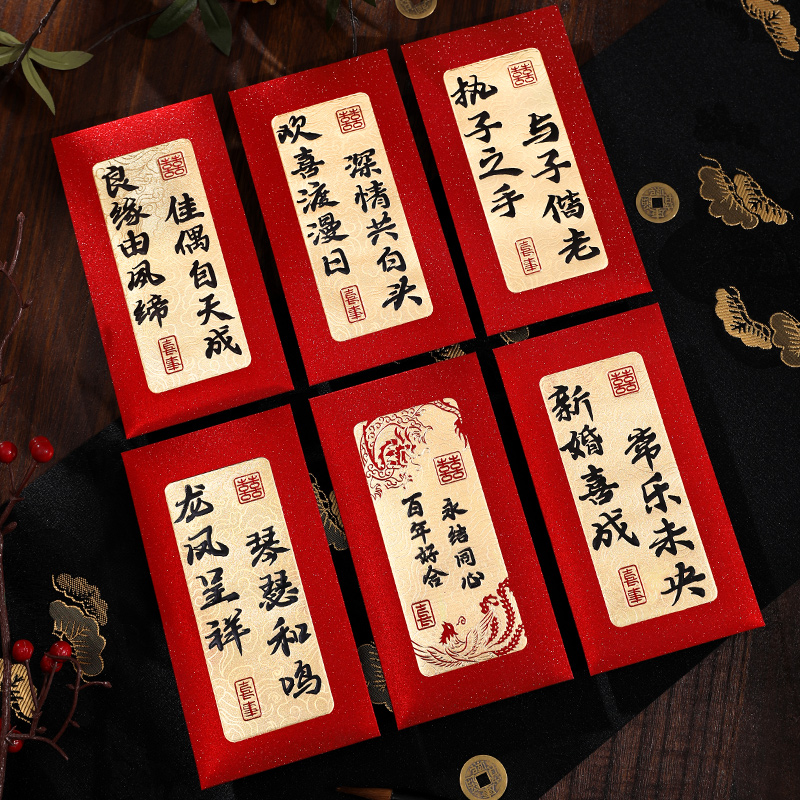 良缘由夙缔
佳偶自天成
囍
喜事
欢喜渡漫日
深情共白头
囍
喜事
执子之手
与子偕老
囍
喜事
龙凤呈祥
琴瑟和鸣
囍
喜事
百年好合
永结同心
囍
喜事
新婚喜成
常乐未央
囍
喜事